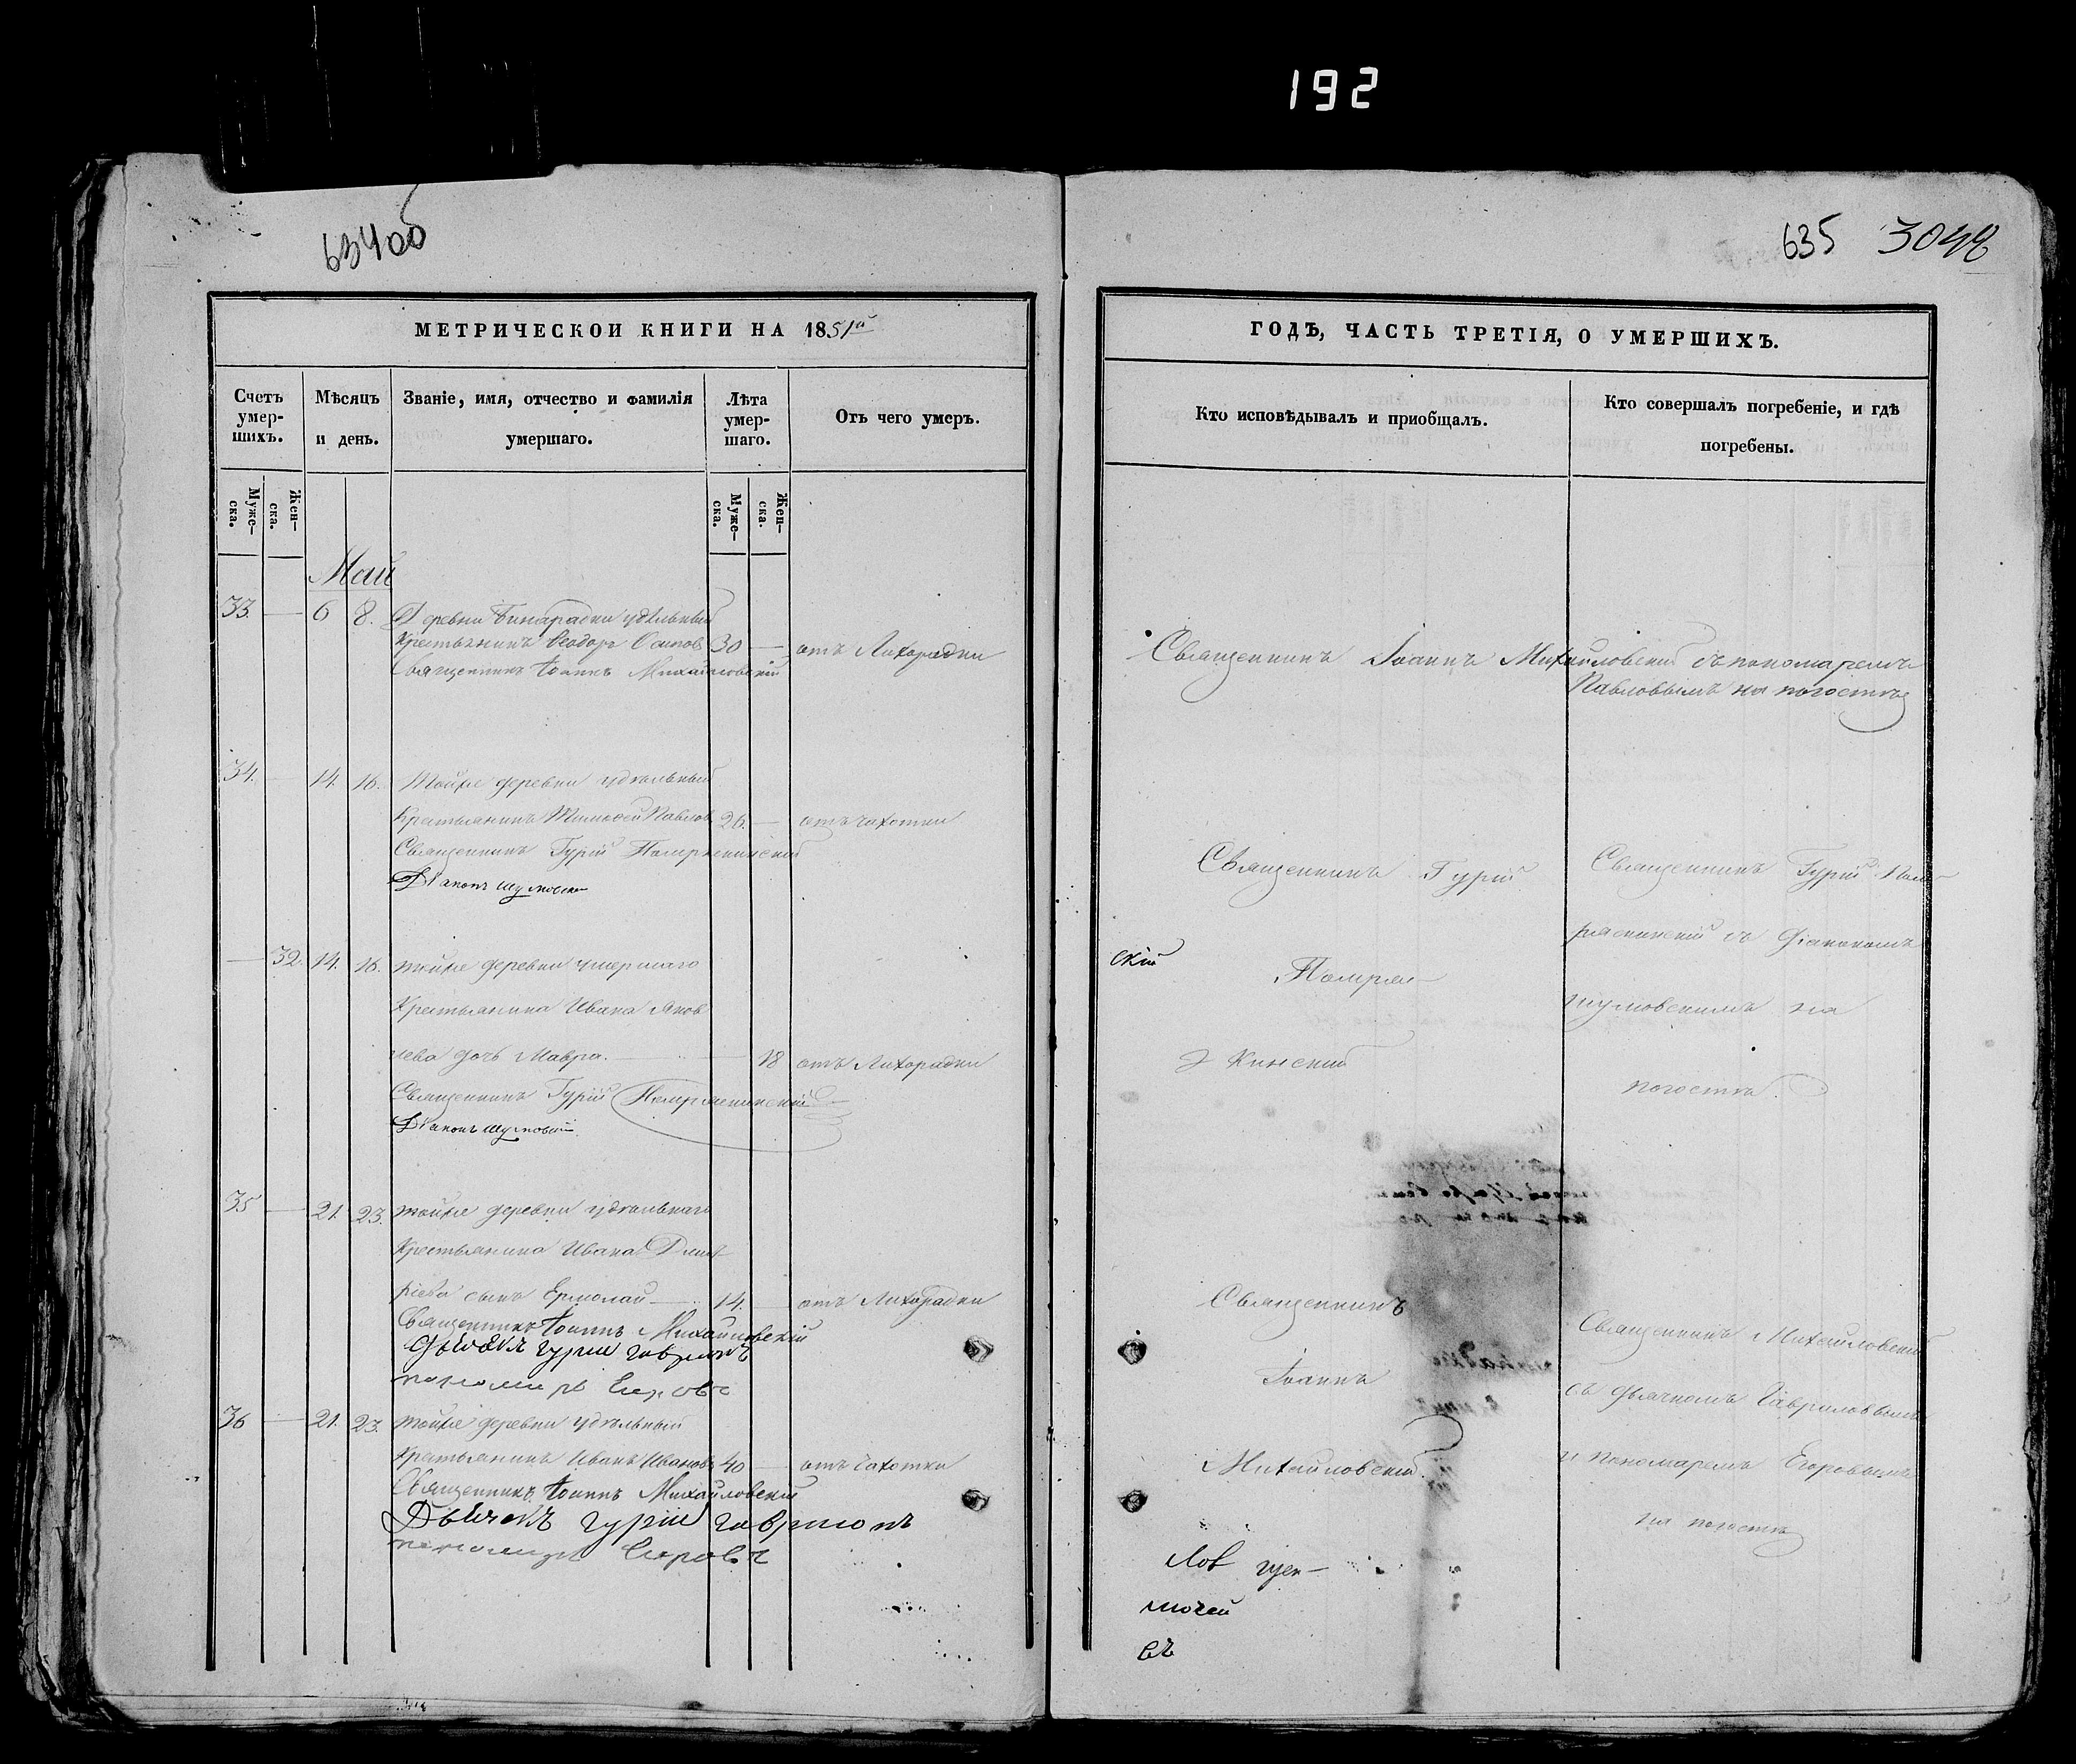 192
634об
635 3048
МЕТРИЧЕСКОЙ КНИГИ НА 1851й
ГОДЪ, ЧАСТЬ ТРЕТІЯ, О УМЕРШИХЪ.
Счетъ умер-шихъ.
Мѣсяцъ и день.
Званіе, имя, отчество и фамилія умершаго.
Лѣта умер-шаго.
Отъ чего умеръ.
Кто исповѣдывалъ и приобщалъ.
Кто совершалъ погребеніе, и гдѣ погребены.
Муже-ска.
Жен-ска.
Муже-ска.
Жен-ска.
Май
33. — 6 8. Деревни Бинарадки удѣльный
Крестьянинъ Ѳеодоръ Осиповъ 30 — отъ Лихорадки
Священникъ Іоаннъ Михайловскій
Священникъ Іоаннъ Михайловскій съ пономаремъ
Павловымъ на погостѣ
34. — 14. 16. Тойже деревни удѣльный
Крестьянинъ Тимоѳей Павловъ 26. — отъ чахотки
Священникъ Гурій
Діаконъ Шумовскій
Священникъ Гурій
Священникъ Гурій
съ Діакономъ
Шумовскимъ на
погостѣ.
скій
— 32. 14. 16. тойже деревни умершаго
Крестьянина Ивана Яков
лева дочь Мавра. — 18 отъ Лихорадки
Священникъ Гурій
Діаконъ Шумовскій
35 — 21. 23. тойже деревни удѣльнаго
Крестьянина Ивана Дмит
ріева сынъ Ермолай — 14. — отъ Лихорадки
Священникъ Іоаннъ Михайловскій
Дьячекъ Гурій Гавриловъ
пономарь Егоровъ
Священникъ
Іоаннъ
Михайловскій.
Священникъ Михайловскій
съ дьячкомъ Гавриловымъ
и пономаремъ Егоровымъ
на погостѣ
36 — 21. 23. тойже деревни удѣльный
Крестьянинъ Иванъ Ивановъ 40 — отъ чахотки
Священникъ Іоаннъ Михайловскій
Дьячекъ Гурій Гавриловъ
пономарь Егоровъ